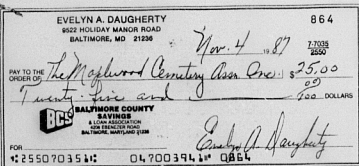 EVELYN A. DAUGHERTY 864
9522 HOLIDAY MANOR ROAD
BALTIMORE, MD 21236
Nov. 4 1987 7-7035
2550
PAY TO THE
ORDER OF The Maplewood Cemetery Assn. Inc. $25.00
Twenty-five and 00/100 DOLLARS
BCS BALTIMORE COUNTY
SAVINGS
& LOAN ASSOCIATION
4208 EBENEZER ROAD
BALTIMORE, MARYLAND 21236
FOR Evelyn A. Daugherty
⑆255070351⑆ 04700394⑈ 0864